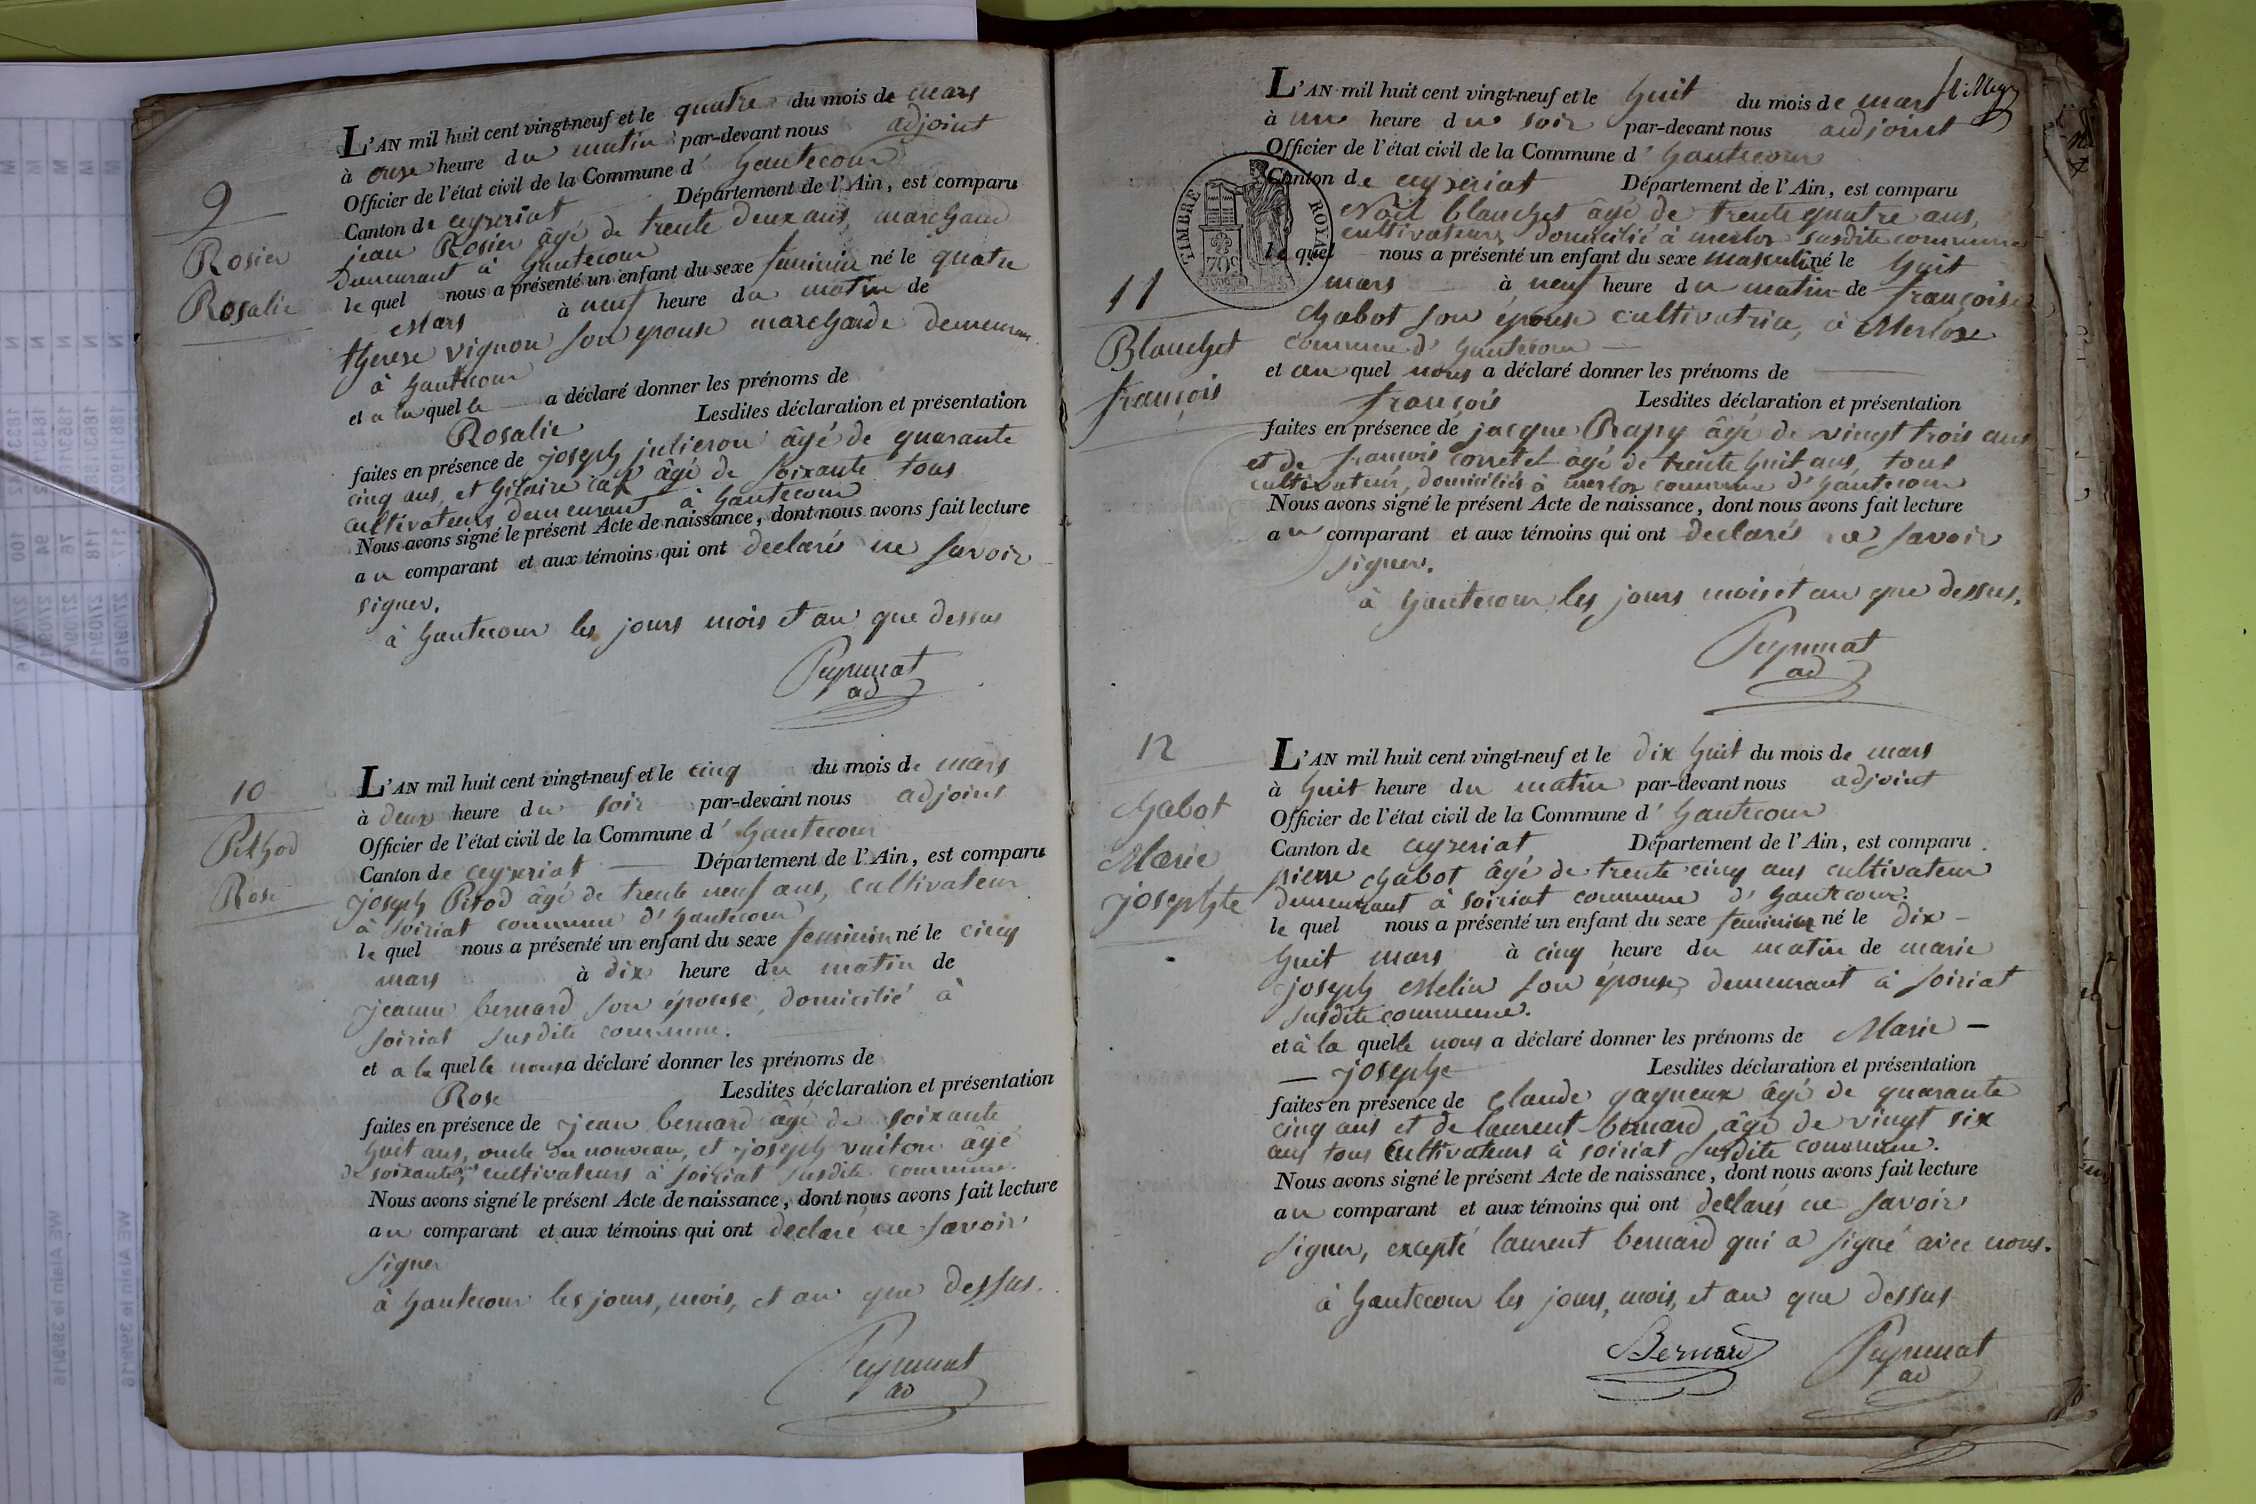 9
Rosier
Rosalie
L'AN mil huit cent vingt-neuf et le quatre du mois de mars
à onze heure du matin par-devant nous adjoint
Officier de l'état civil de la Commune d' hautecour
Canton de ceyzeriat Département de l'Ain, est comparu
jean Rosier âgé de trente deux ans, marchand
demeurant à hautecour
le quel nous a présenté un enfant du sexe feminin né le quatre
Mars à neuf heure du matin de
therese vignon son epouse marchande demeurant
à hautecour
et a la quelle a déclaré donner les prénoms de
Rosalie Lesdites déclaration et présentation
faites en présence de joseph julieron âgé de quarante
cinq ans, et hilaire âgé de soixante tous
cultivateurs demeurant à hautecour
Nous avons signé le présent Acte de naissance, dont nous avons fait lecture
au comparant et aux témoins qui ont declarés ne savoir
signer.
à hautecour les jours mois et an que dessus
ad
10
Pithod
Rose
L'AN mil huit cent vingt-neuf et le cinq du mois de mars
à deux heure du soir par-devant nous adjoint
Officier de l'état civil de la Commune d' hautecour
Canton de ceyzeriat Département de l'Ain, est comparu
joseph Pitod âgé de trente neuf ans, cultivateur
à soiriat commune d'hautecour
le quel nous a présenté un enfant du sexe feminin né le cinq
mars à dix heure du matin de
jeanne bernard son épouse, domicilié à
soiriat susdite commune.
et a la quelle nous a déclaré donner les prénoms de
Rose Lesdites déclaration et présentation
faites en présence de jean bernard âgé de soixante
huit ans, oncle du nouveau, et joseph vuiton âgé
de soixante, cultivateurs à soiriat susdite commune.
Nous avons signé le présent Acte de naissance, dont nous avons fait lecture
au comparant et aux témoins qui ont declaré ne savoir
signer
à hautecour les jours, mois, et an que dessus.
ad
TIMBRE ROYAL
70c
11
Blanchet
françois
L'AN mil huit cent vingt-neuf et le huit du mois de mars
à une heure du soir par-devant nous adjoint
Officier de l'état civil de la Commune d' hautecour
Canton de ceyzeriat Département de l'Ain, est comparu
Noël blanchet âgé de trente quatre ans,
cultivateur, domicilié à merloz susdite commune
le quel nous a présenté un enfant du sexe masculin né le huit
mars à neuf heure du matin de françoise
chabot son épouse cultivatrice, à Merloz
commune d'hautecour
et au quel nous a déclaré donner les prénoms de
françois Lesdites déclaration et présentation
faites en présence de jacque âgé de vingt trois ans
et de françois corretel âgé de trente huit ans, tous
cultivateur, domiciliés à merloz commune d'hautecour
Nous avons signé le présent Acte de naissance, dont nous avons fait lecture
au comparant et aux témoins qui ont declarés ne savoir
signer.
à hautecour les jours mois et an que dessus.
ad
12
chabot
Marie
josephte
L'AN mil huit cent vingt-neuf et le dix huit du mois de mars
à huit heure du matin par-devant nous adjoint
Officier de l'état civil de la Commune d' hautecour
Canton de ceyzeriat Département de l'Ain, est comparu
pierre chabot âgé de trente cinq ans cultivateur
demeurant à soiriat commune d'hautecour.
le quel nous a présenté un enfant du sexe feminin né le dix -
huit mars à cinq heure du matin de marie
joseph Melin son épouse, demeurant à soiriat
susdite commune.
et à la quelle nous a déclaré donner les prénoms de Marie -
- josephe Lesdites déclaration et présentation
faites en présence de claude gagneux âgé de quarante
cinq ans et de laurent bernard âgé de vingt six
ans tous cultivateurs à soiriat susdite commune.
Nous avons signé le présent Acte de naissance, dont nous avons fait lecture
au comparant et aux témoins qui ont declarés ne savoir
signer, excepté laurent bernard qui a signé avec nous.
à hautecour les jours, mois, et an que dessus
Bernard
ad